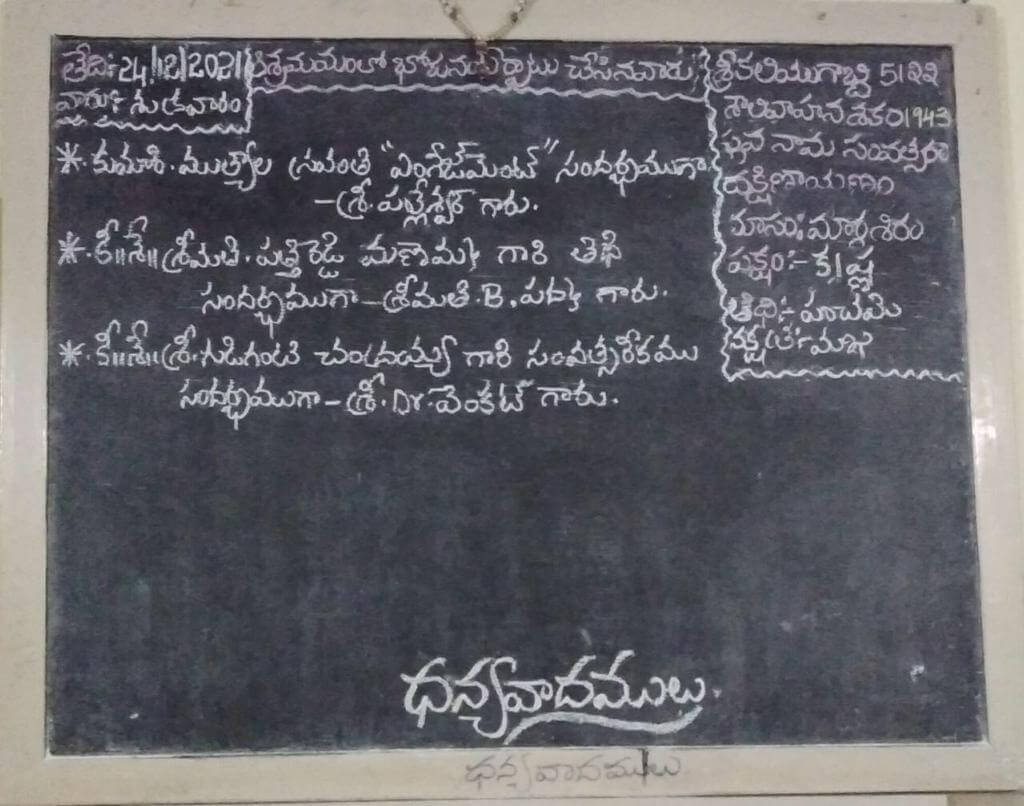 తేది:24/12/2021
వారం: శుక్రవారం
ఆశ్రమములో భోజనయేర్పాటు చేసినవారు
శ్రీకలియుగాబ్ది 5122
శాలివాహన శకం 1943
ప్లవ నామ సంవత్సరం
దక్షిణాయణం
మాసం: మార్గశిరం
పక్షం:- కృష్ణ
తిథి:- పంచమి
నక్షత్ర: మాఘ
* కుమారి. ముత్యాల స్రవంతి "ఎంగేజ్‌మెంట్" సందర్భముగా
-శ్రీ. పల్లేశ్వర్ గారు.
* కీ॥శే॥ శ్రీమతి. పత్తిరెడ్డి మణెమ్మ గారి తిథి
సందర్భముగా - శ్రీమతి. B. పద్మ గారు.
* కీ॥శే॥ శ్రీ. గుడిగంటి చంద్రయ్య గారి సంవత్సరీకము
సందర్భముగా - శ్రీ. Dr. వెంకట్ గారు.
ధన్యవాదములు.
ధన్యవాదములు